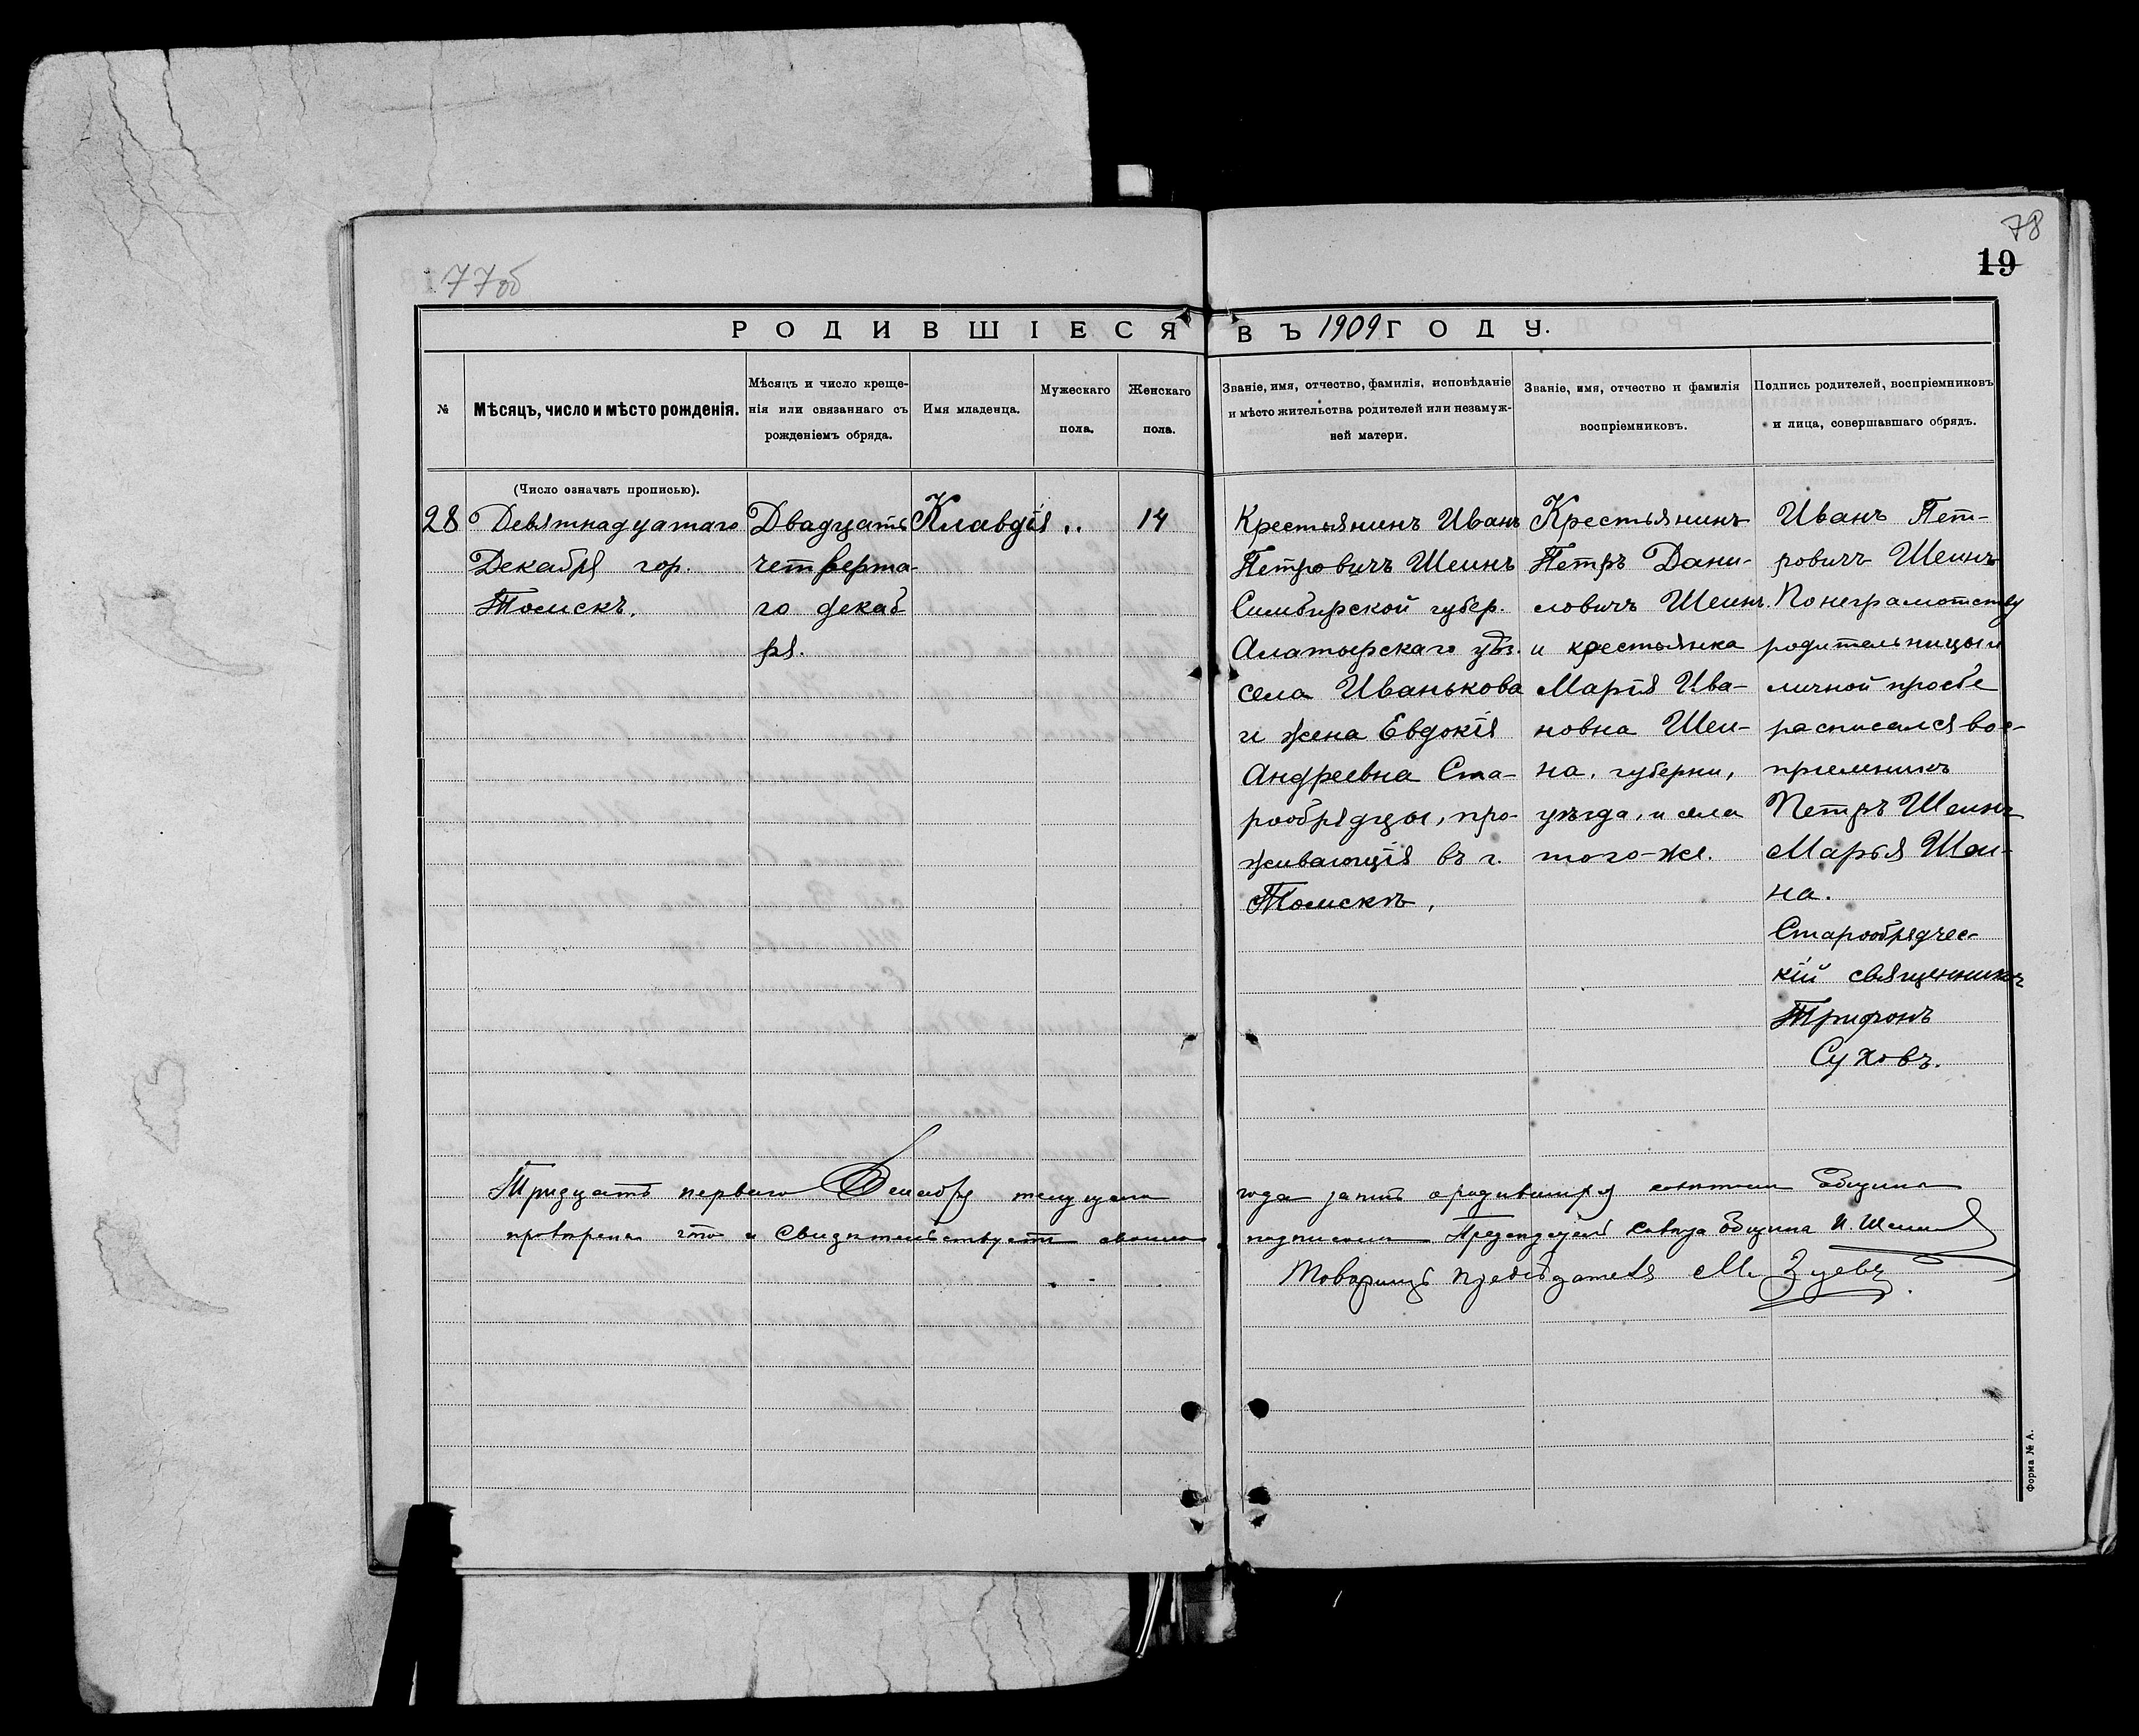 77об
78
19
РОДИВШІЕСЯ ВЪ 1909 ГОДУ.
№
Мѣсяцъ, число и мѣсто рожденія.
Мѣсяцъ и число креще-
нія или связаннаго съ
рожденіемъ обряда.
Имя младенца.
Мужескаго
пола.
Женскаго
пола.
Званіе, имя, отчество, фамилія, исповѣданіе
и мѣсто жительства родителей или незамуж-
ней матери.
Званіе, имя, отчество и фамилія
воспріемниковъ.
Подпись родителей, воспріемниковъ
и лица, совершавшаго обрядъ.
(Число означать прописью).
28
Девятнадцатаго
Декабря гор.
Томскъ.
Двадцать
четверта-
го декаб
ря.
Клавдія
..
14
Крестьянинъ Иванъ
Петровичъ Шеинъ
Симбирской губер.
Алатырскаго уѣз.
села Иванькова
и жена Евдокія
Андреевна Ста-
рообрядцы, про-
живающія въ г.
Томскѣ,
Крестьянинъ
Петръ Дани-
ловичъ Шеинъ.
и крестьянка
Марія Ива-
новна Шеи-
на. губерни,
уѣзда, и села
того-же.
Иванъ Пет-
ровичъ Шеинъ
По неграмотству
родительницы и
личной просбе
расписался вос-
пріемникъ
Петръ Шеинъ
Марья Шеи-
на.
Старообрядчес-
кій священникъ
Трифонъ
Суховъ.
Тридцать перваго Декабря текущаго года запись о родившихся совѣтомъ общины
провѣрена что и свидѣтельствуетъ своимъ подписомъ Председатель Совѣта Общины И. Шеинъ
Товарищъ председателя М. Зуевъ.
Форма № А.